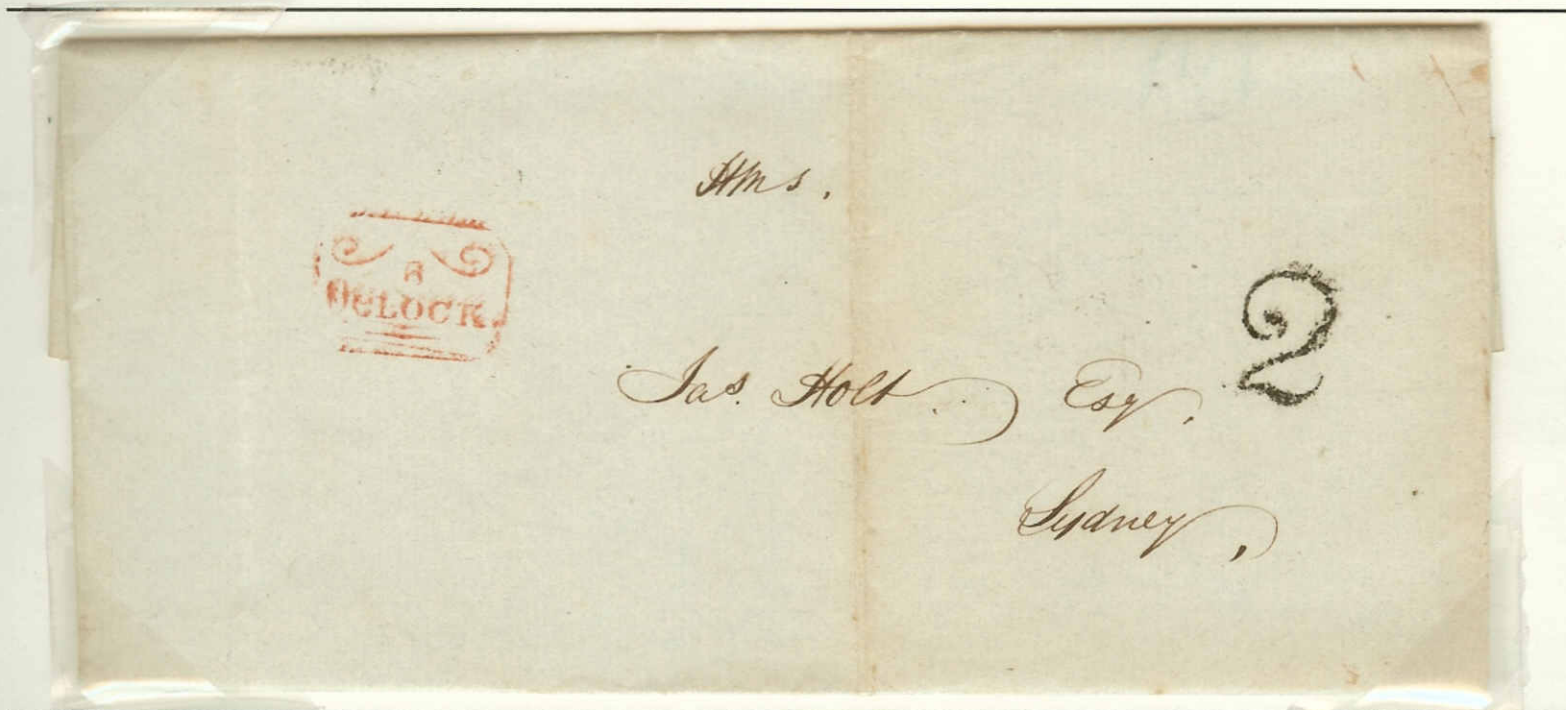 Hms.
8
O'CLOCK
2
Jas. Holt. Esqr.
Sydney,